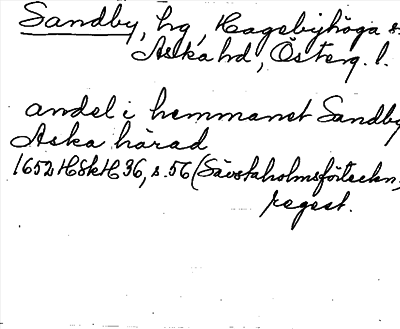 Sandby, hg, Hagebyhöga s.
Aska hd, Österg. l.
andel i hemmanet Sandby
Aska härad
1652 HSkH 36, s. 56 (Säfstaholmsförteckn.,
regest.